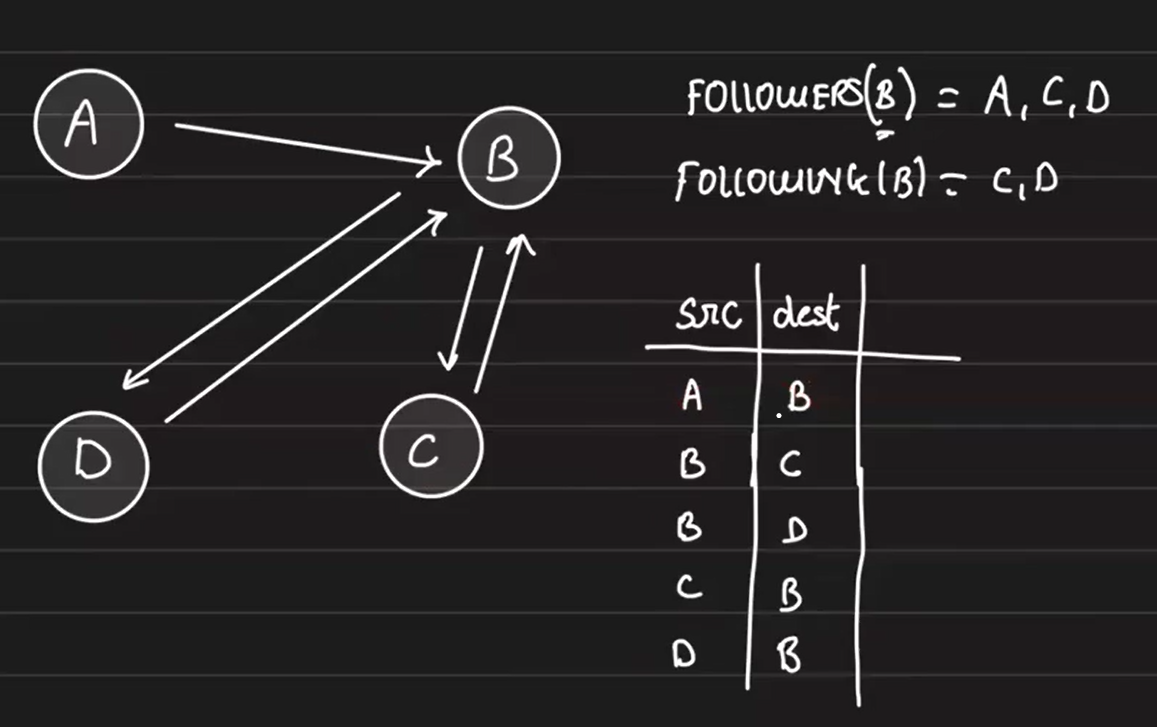 A
B
D
C
FOLLOWERS(B) = A, C, D
FOLLOWING(B) = C, D
src dest
A B
B C
B D
C B
D B